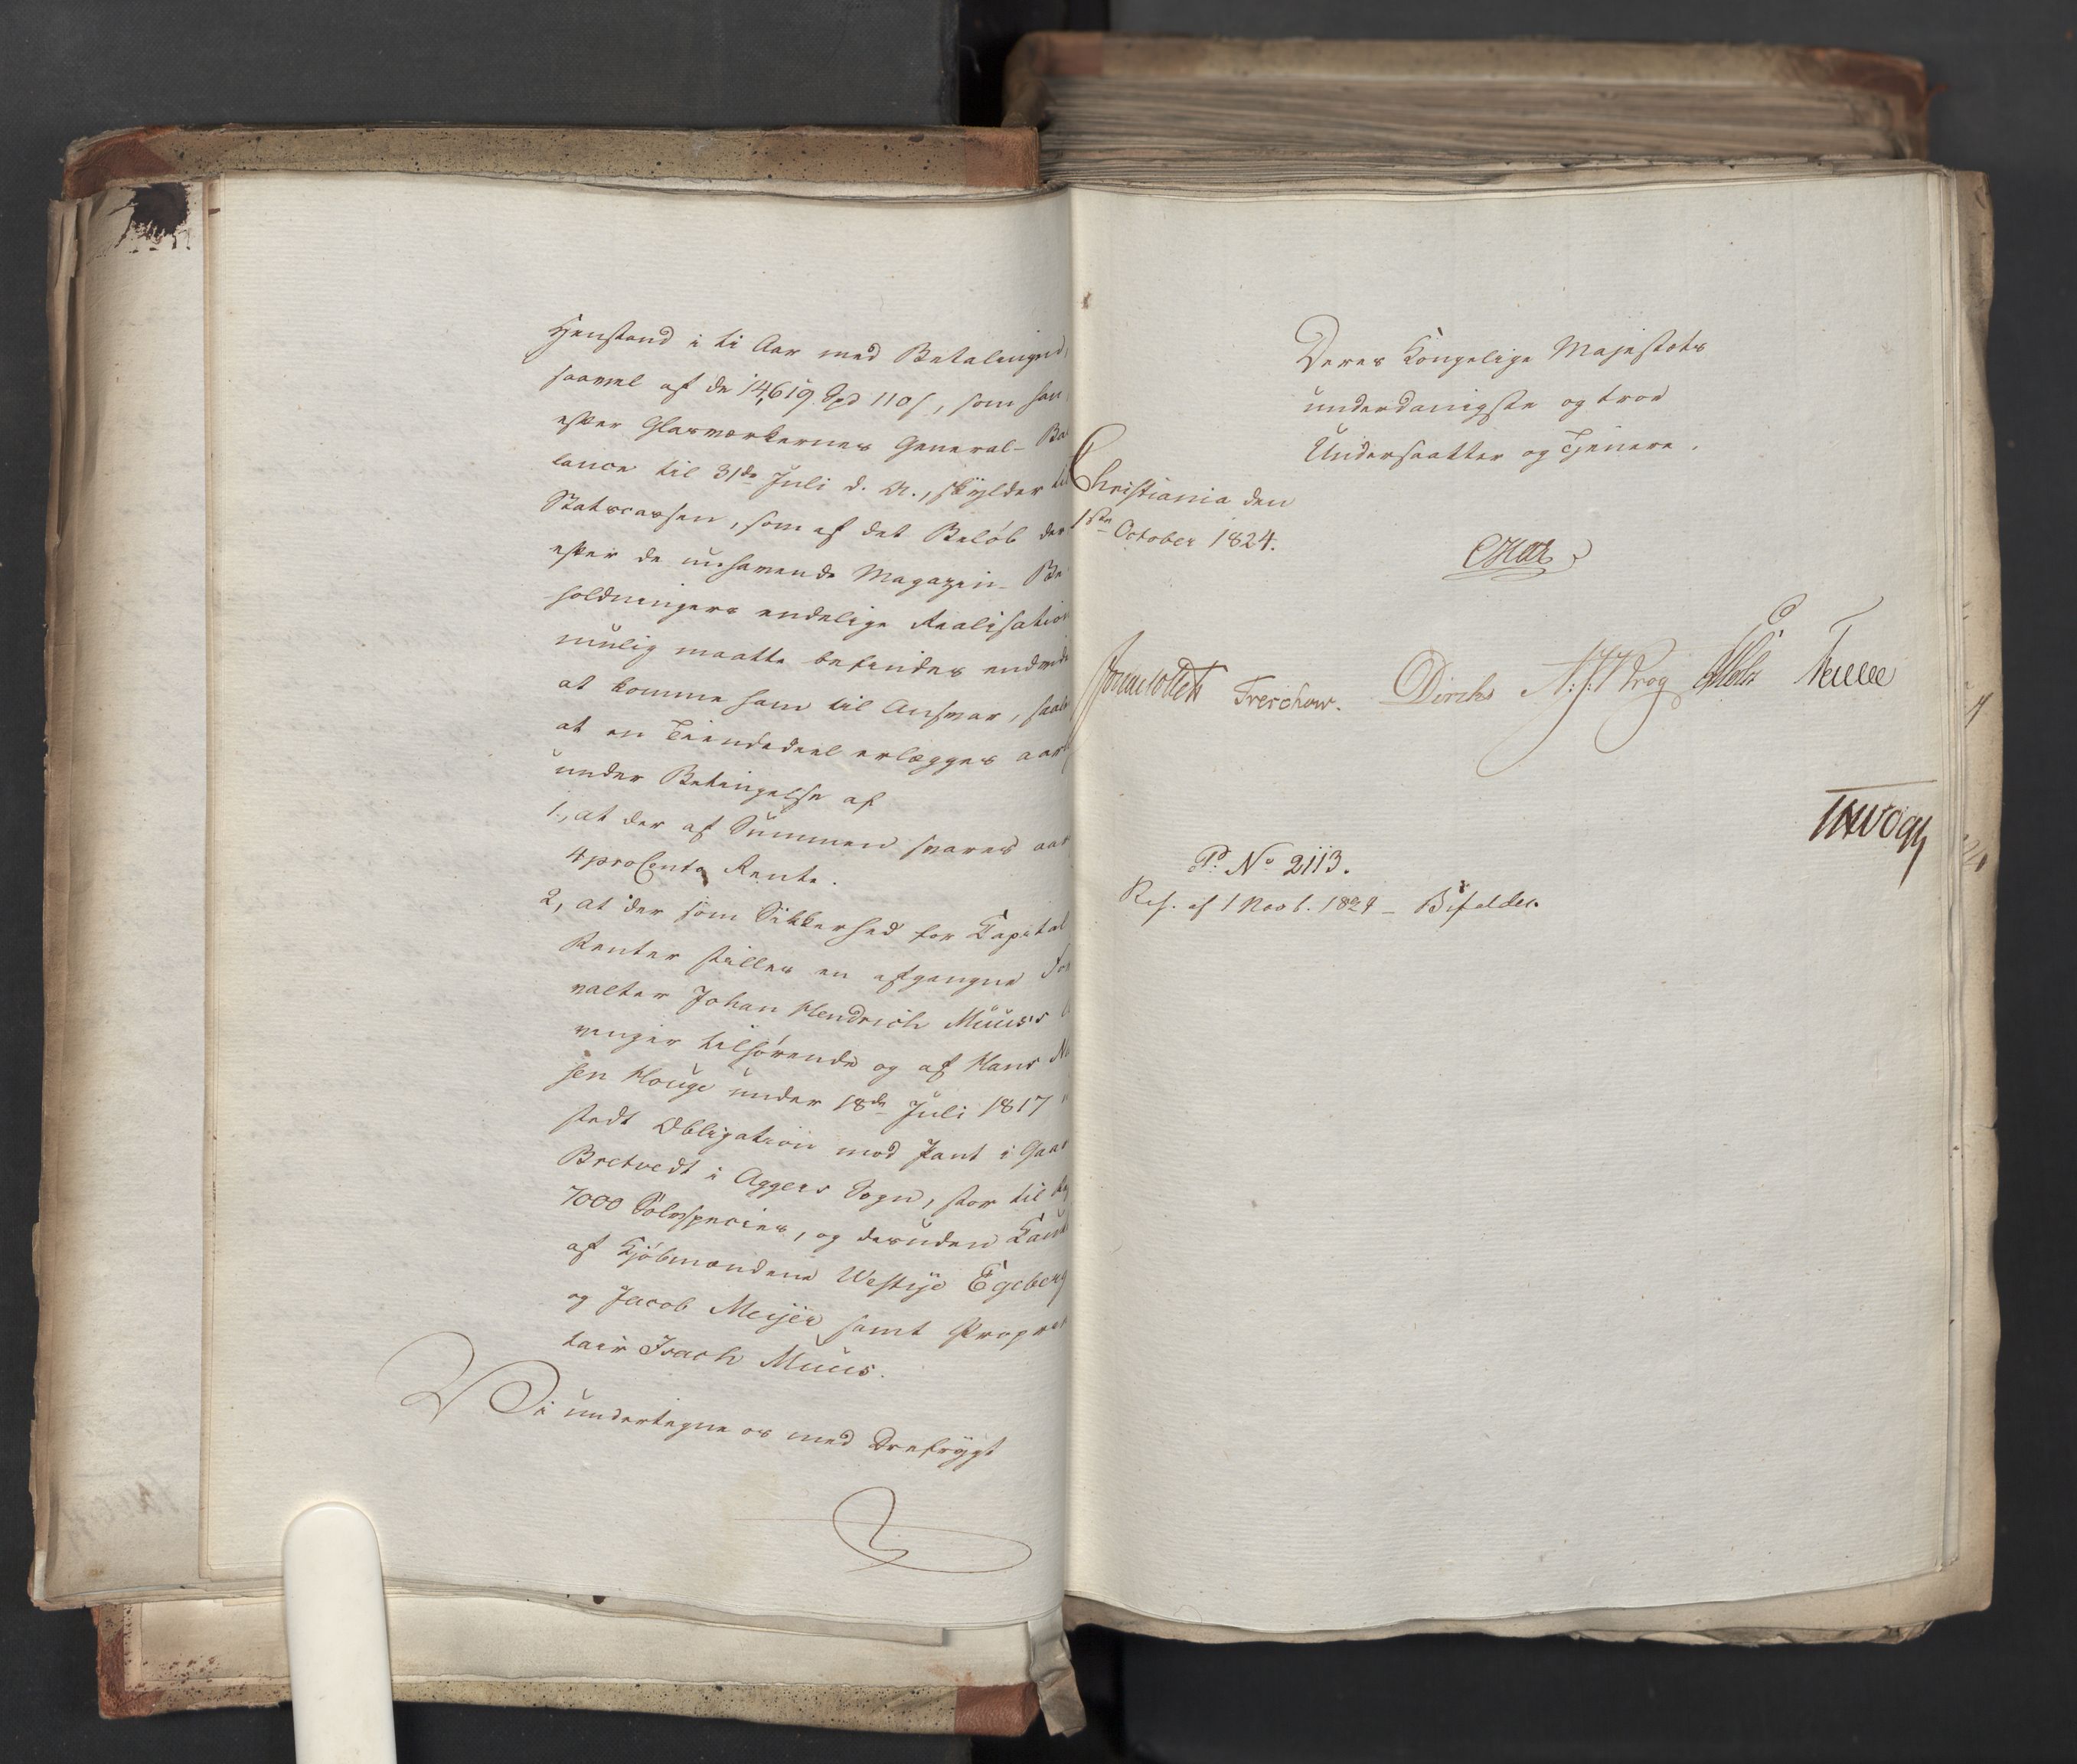 Henstand i ti Aar med Betalingen,
saavel af de 14,619 Spd 110 s, som han
efter Glasværkernes General- Ba
lance til 31de Juli d. A., skylder til
Statscassen, som af det Beløb der
efter de nuhavende Magazin- Be
holdningers endelige Realisation
mulig maatte befindes endvide
at komme ham til Ansvar, saale
at en Tiendedeel erlægges aarl
under Betingelse af
1., at der af Summen svares aar
4 proCento Rente.
2, at der som Sikkerhed for Capital
Renter stilles en afgangne For
valter Johan Hendrich Muus's
vinger tilhørende og af Hans Ni
sen Houge under 18de Juli 1817
stedt Obligation mod Pant i Gaar
Bretvedt i Aggers Sogn, stor til
7000 Sølvspecies, og desuden Caut
af Kjøbmændene Westye Egeberg
og Jacob Meyer samt Proprie
tair Isach Muus.
Vi undertegne os med Ærefrygt
Deres Kongelige Majestæts
underdanigste og troe
Undersaatter og Tjenere.
Christiania den
1ste October 1824.
Jonas Collett Treschow. Diriks Krog Holst Fasting
P. No 2113.
Res. af 1 Novb. 1824 - Bifaldes.